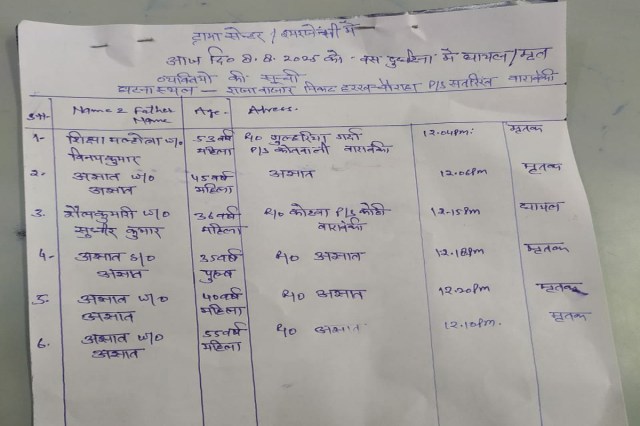 ट्रामा सेन्टर / इमरजेन्सी में
आज दि० 8.8.2025 को बस दुर्घटना में घायल/मृत
व्यक्तियों की सूची
घटना स्थल — राजाबाजार निकट हरख चौराहा P/S सतरिख बाराबंकी
Name & Father Name Age. Adress.
1- शिक्षा मल्होत्रा W/o 53 वर्ष R/o गुल्हरिया गार्दा 12.04Pm. मृतक
विनय कुमार महिला P/S कोतवाली बाराबंकी
2. अज्ञात W/o 45 वर्ष अज्ञात 12.06Pm मृतक
अज्ञात महिला
3. शैलकुमारी W/o 36 वर्ष R/o कोठवा P/S कोठी 12-15Pm घायल
सुधीर कुमार महिला बाराबंकी
4- अज्ञात S/o 35 वर्ष R/o अज्ञात 12.18Pm मृतक
अज्ञात पुरुष
5. अज्ञात W/o 40 वर्ष R/o अज्ञात 12.20Pm मृतक
अज्ञात महिला
6. अज्ञात W/o 55 वर्ष R/o अज्ञात 12.10Pm. मृतक
अज्ञात महिला